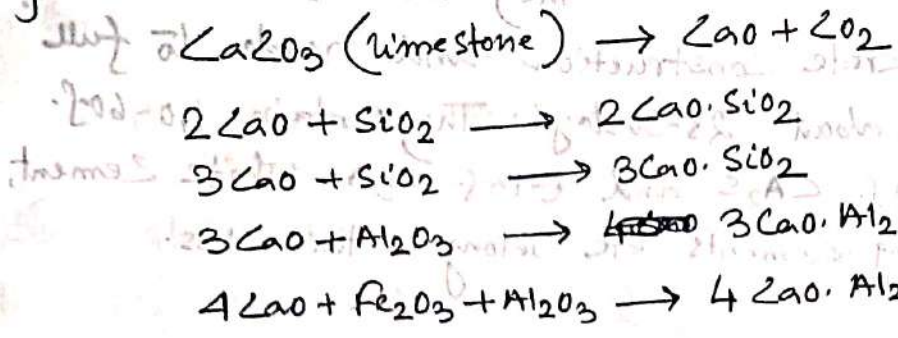 CaCO₃ (limestone) → CaO + CO₂
2CaO + SiO₂ → 2CaO·SiO₂
3CaO + SiO₂ → 3CaO·SiO₂
3CaO + Al₂O₃ → 3CaO·Al₂
4CaO + Fe₂O₃ + Al₂O₃ → 4CaO·Al₂